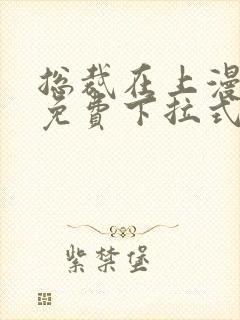 总裁在上漫
免费下拉式
紫禁堡